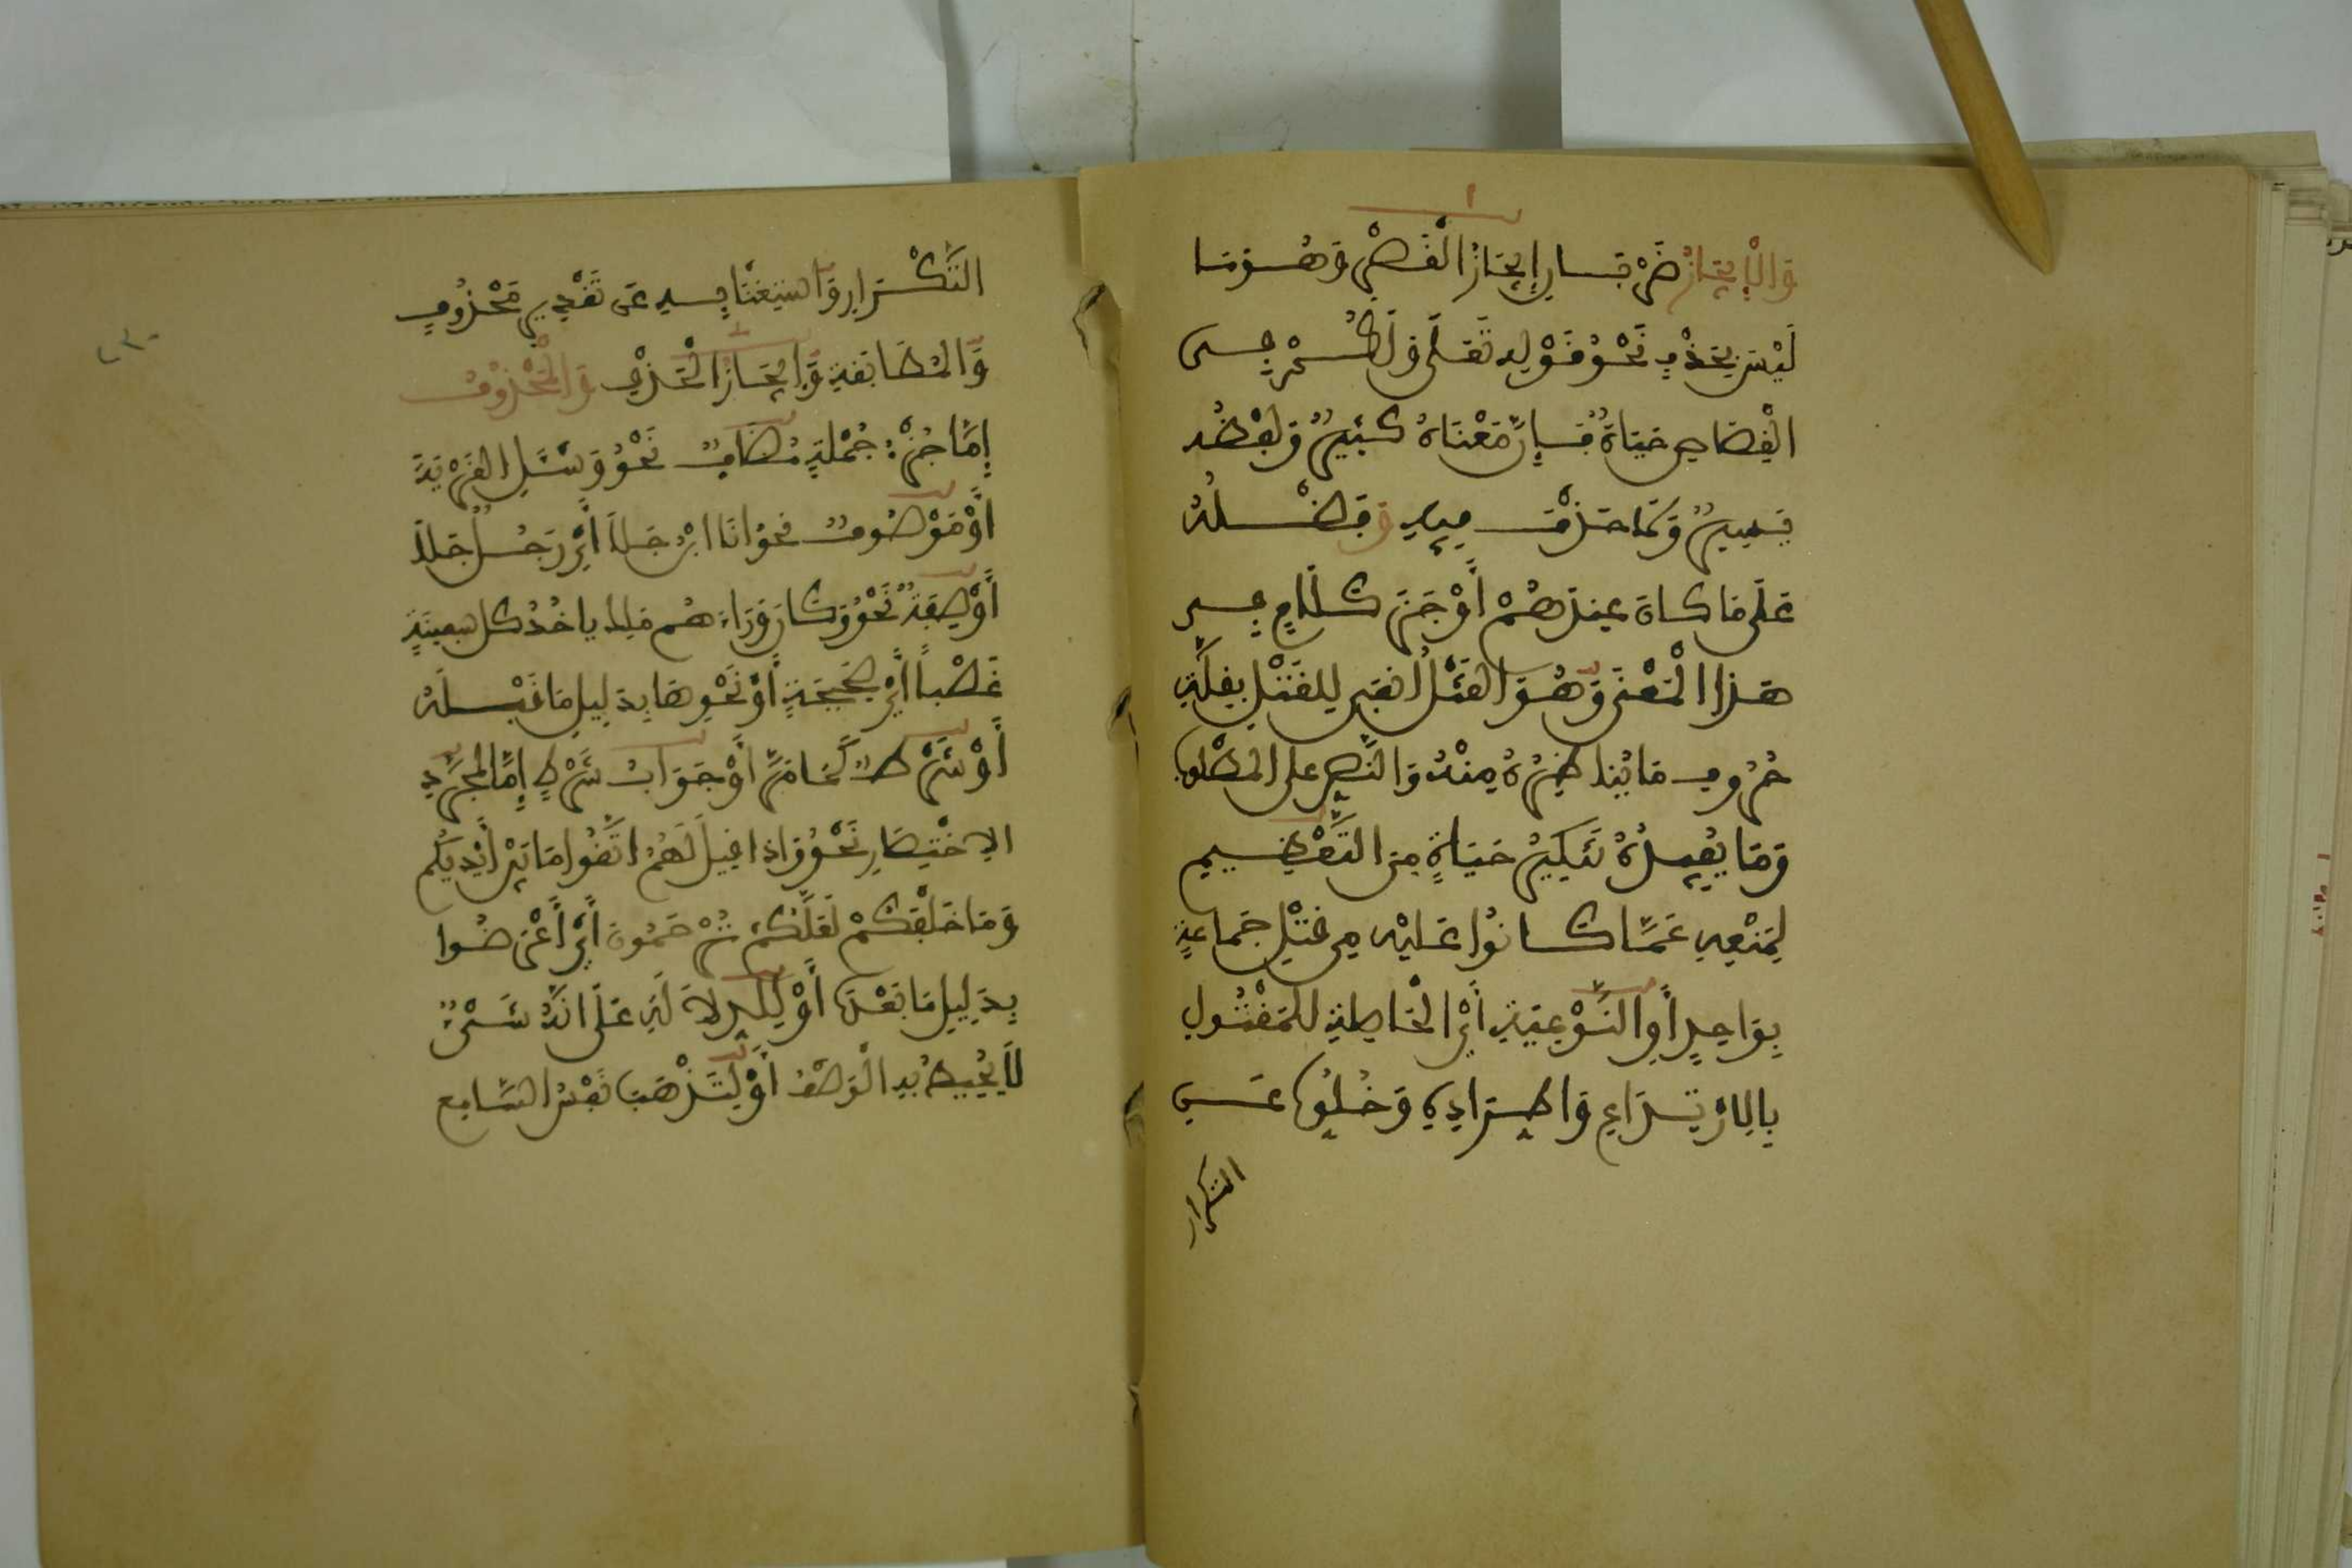 وَالْإِيجَازُ ضَرْبَانِ إِيجَازُ الْقَصْرِ وَهُوَ مَا
لَيْسَ بِحَذْفٍ نَحْوُ قَوْلِهِ تَعَلَى وَلَكُمْ فِى
الْقِصَاصِ حَيَاةٌ فَإِنَّ مَعْنَاهُ كَثِيرٌ وَلَفْظُهُ
يَسِيرٌ وَلَا حَذْفَ فِيهِ وَفَضْلُهُ
عَلَى مَا كَانَ عِنْدَهُمْ أَوْجَزَ كَلَامٍ فِى
هَذَا الْمَعْنَى وَهُوَ الْقَتْلُ انْفَى لِلْقَتْلِ بِقِلَّةِ
حُرُوفِ مَا يُنَاظِرُهُ مِنْهُ وَالنَّصِّ عَلَى الْمَطْلُوبِ
وَمَا يُفِيدُهُ تَنْكِيرُ حَيَاةٍ مِنَ التَّعْظِيمِ
لِمَنْعِهِ عَمَّا كَانُوا عَلَيْهِ مِنْ قَتْلِ جَمَاعَةٍ
بِوَاحِدٍ أَوِ النَّوْعِيَّةِ أَيِ الْحَاصِلَةِ لِلْمَقْتُولِ
بِالِارْتِدَاعِ وَاطِّرَادِهِ وَخُلُوِّهِ عَنِ
التكرار
التَّكْرَارِ وَاسْتِغْنَائِهِ عَنْ تَقْدِيرِ مَحْذُوفٍ
وَالْمُطَابَقَةِ وَإِيجَازُ الْحَذْفِ وَالْمَحْذُوفُ
إِمَّا جُزْءُ جُمْلَةٍ مُضَافٌ نَحْوُ وَسْئَلِ الْقَرْيَةَ
أَوْ مَوْصُوفٌ نَحْوُ انَا ابْنُ جَلَا أَيْ رَجُلٍ جَلَا
أَوْ صِفَةٌ نَحْوُ وَكَانَ وَرَاءَهُم مَلِكٌ يَاخُذُ كُلَّ سَفِينَةٍ
غَصْباً أَيْ صَحِيحَةٍ أَوْ نَحْوِهَا بِدَلِيلِ مَا قَبْلَهُ
أَوْ شَرْطٌ كَمَا مَرَّ أَوْ جَوَابُ شَرْطٍ إِمَّا لِمُجَرَّدِ
الِاخْتِصَارِ نَحْوُ وَإِذَا قِيلَ لَهُمُ اتَّقُوا مَا بَيْنَ أَيْدِيكُمْ
وَمَا خَلْفَكُمْ لَعَلَّكُمْ تُرْحَمُونَ أَيْ أَعْرَضُوا
بِدَلِيلِ مَا بَعْدَهُ أَوْ لِلدِّلَالَةِ عَلَى انَّهُ شَىْءٌ
لَا يُحِيطُ بِهِ الْوَصْفُ أَوْ لِتَذْهَبَ نَفْسُ السَّامِعِ